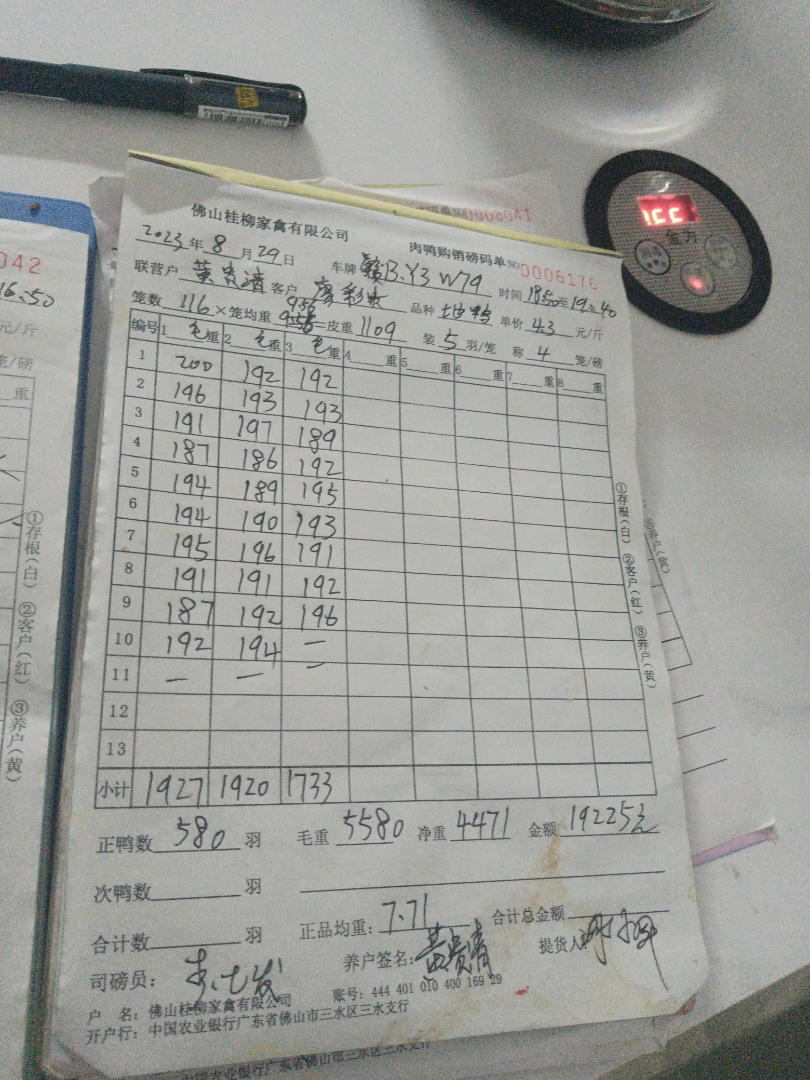 0008041
佛山桂柳家禽有限公司
肉鸭购销磅码单NO 0006176
2023年8月29日 车牌 赣B.Y3W79 时间 1850至19:40
联营户 黄贵清 客户 廖彩 品种 鸭 单价 4.3 元/斤
笼数 116 ×笼均重 9.56 一皮重 1109 装 5 羽/笼 称 4 笼/磅
编号 1 毛重 2 毛重 3 毛重 4 重 5 重 6 重 7 重 8 重
1 200 192 192
2 196 193 193
3 191 197 189
4 187 186 192
5 194 189 195
6 194 190 193
7 195 196 191
8 191 191 192
9 187 192 196
10 192 194 一
11 一 一
12
13
小计 1927 1920 1733
正鸭数 580 羽 毛重 5580 净重 4471 金额 19225元
次鸭数 羽
合计数 羽 正品均重: 7.71 合计总金额
司磅员: 养户签名: 黄贵清 提货人
户 名: 佛山桂柳家禽有限公司 账号: 444 401 010 400 169 29
开户行: 中国农业银行广东省佛山市三水区三水支行
①存根(白) ②客户(红) ③养户(黄)
042
16:50
元/斤
笼/磅
重
①存根(白) ②客户(红) ③养户(黄)
③养户(黄)
中国农业银行广东省佛山市三水区三水支行